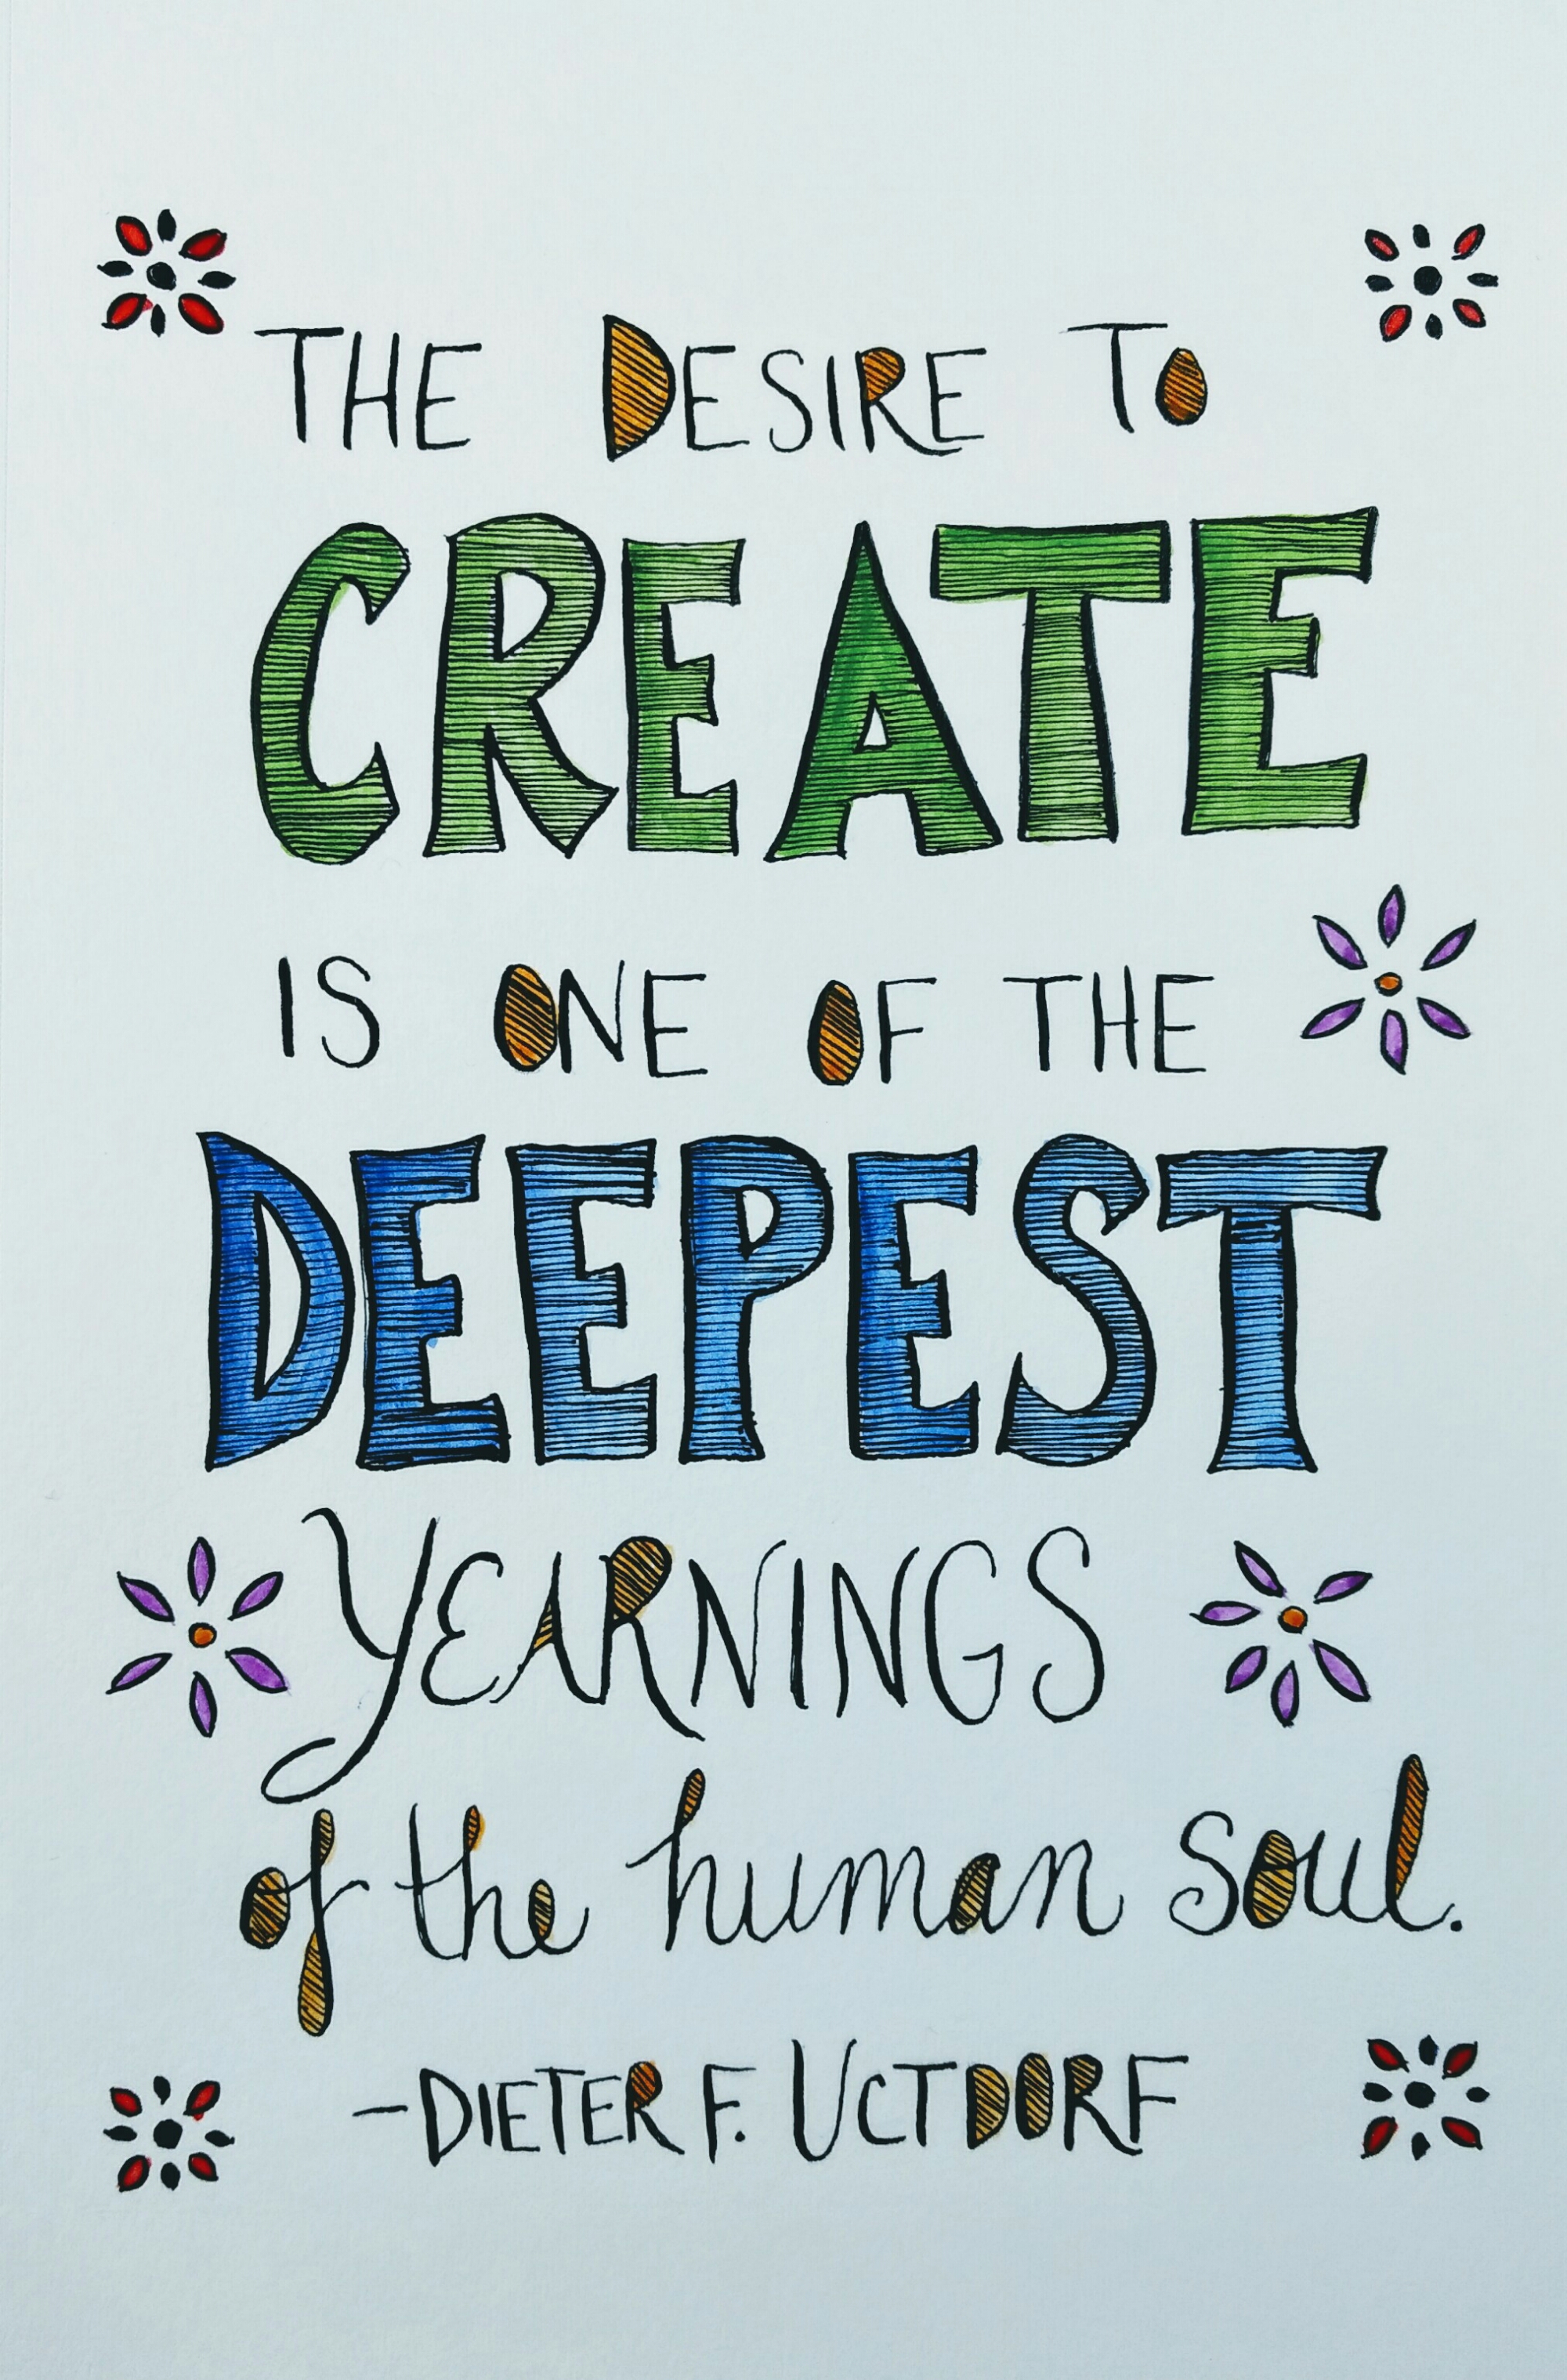 THE DESIRE TO
CREATE
IS ONE OF THE
DEEPEST
YEARNINGS
of the human soul.
-DIETER F. UCTDORF